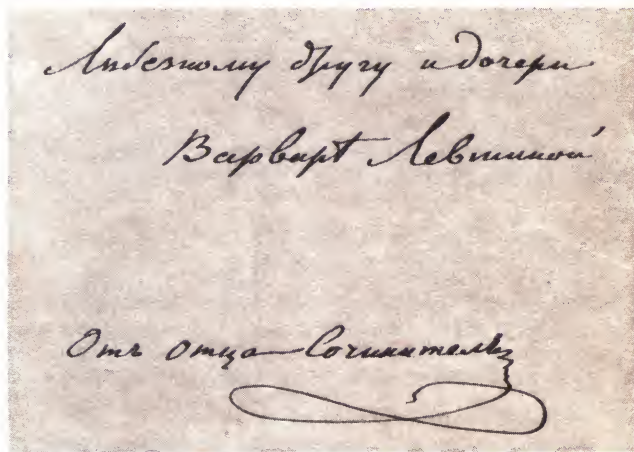 Любезному другу и дочери
Варварѣ Левшиной
Отъ отца Сочинителя